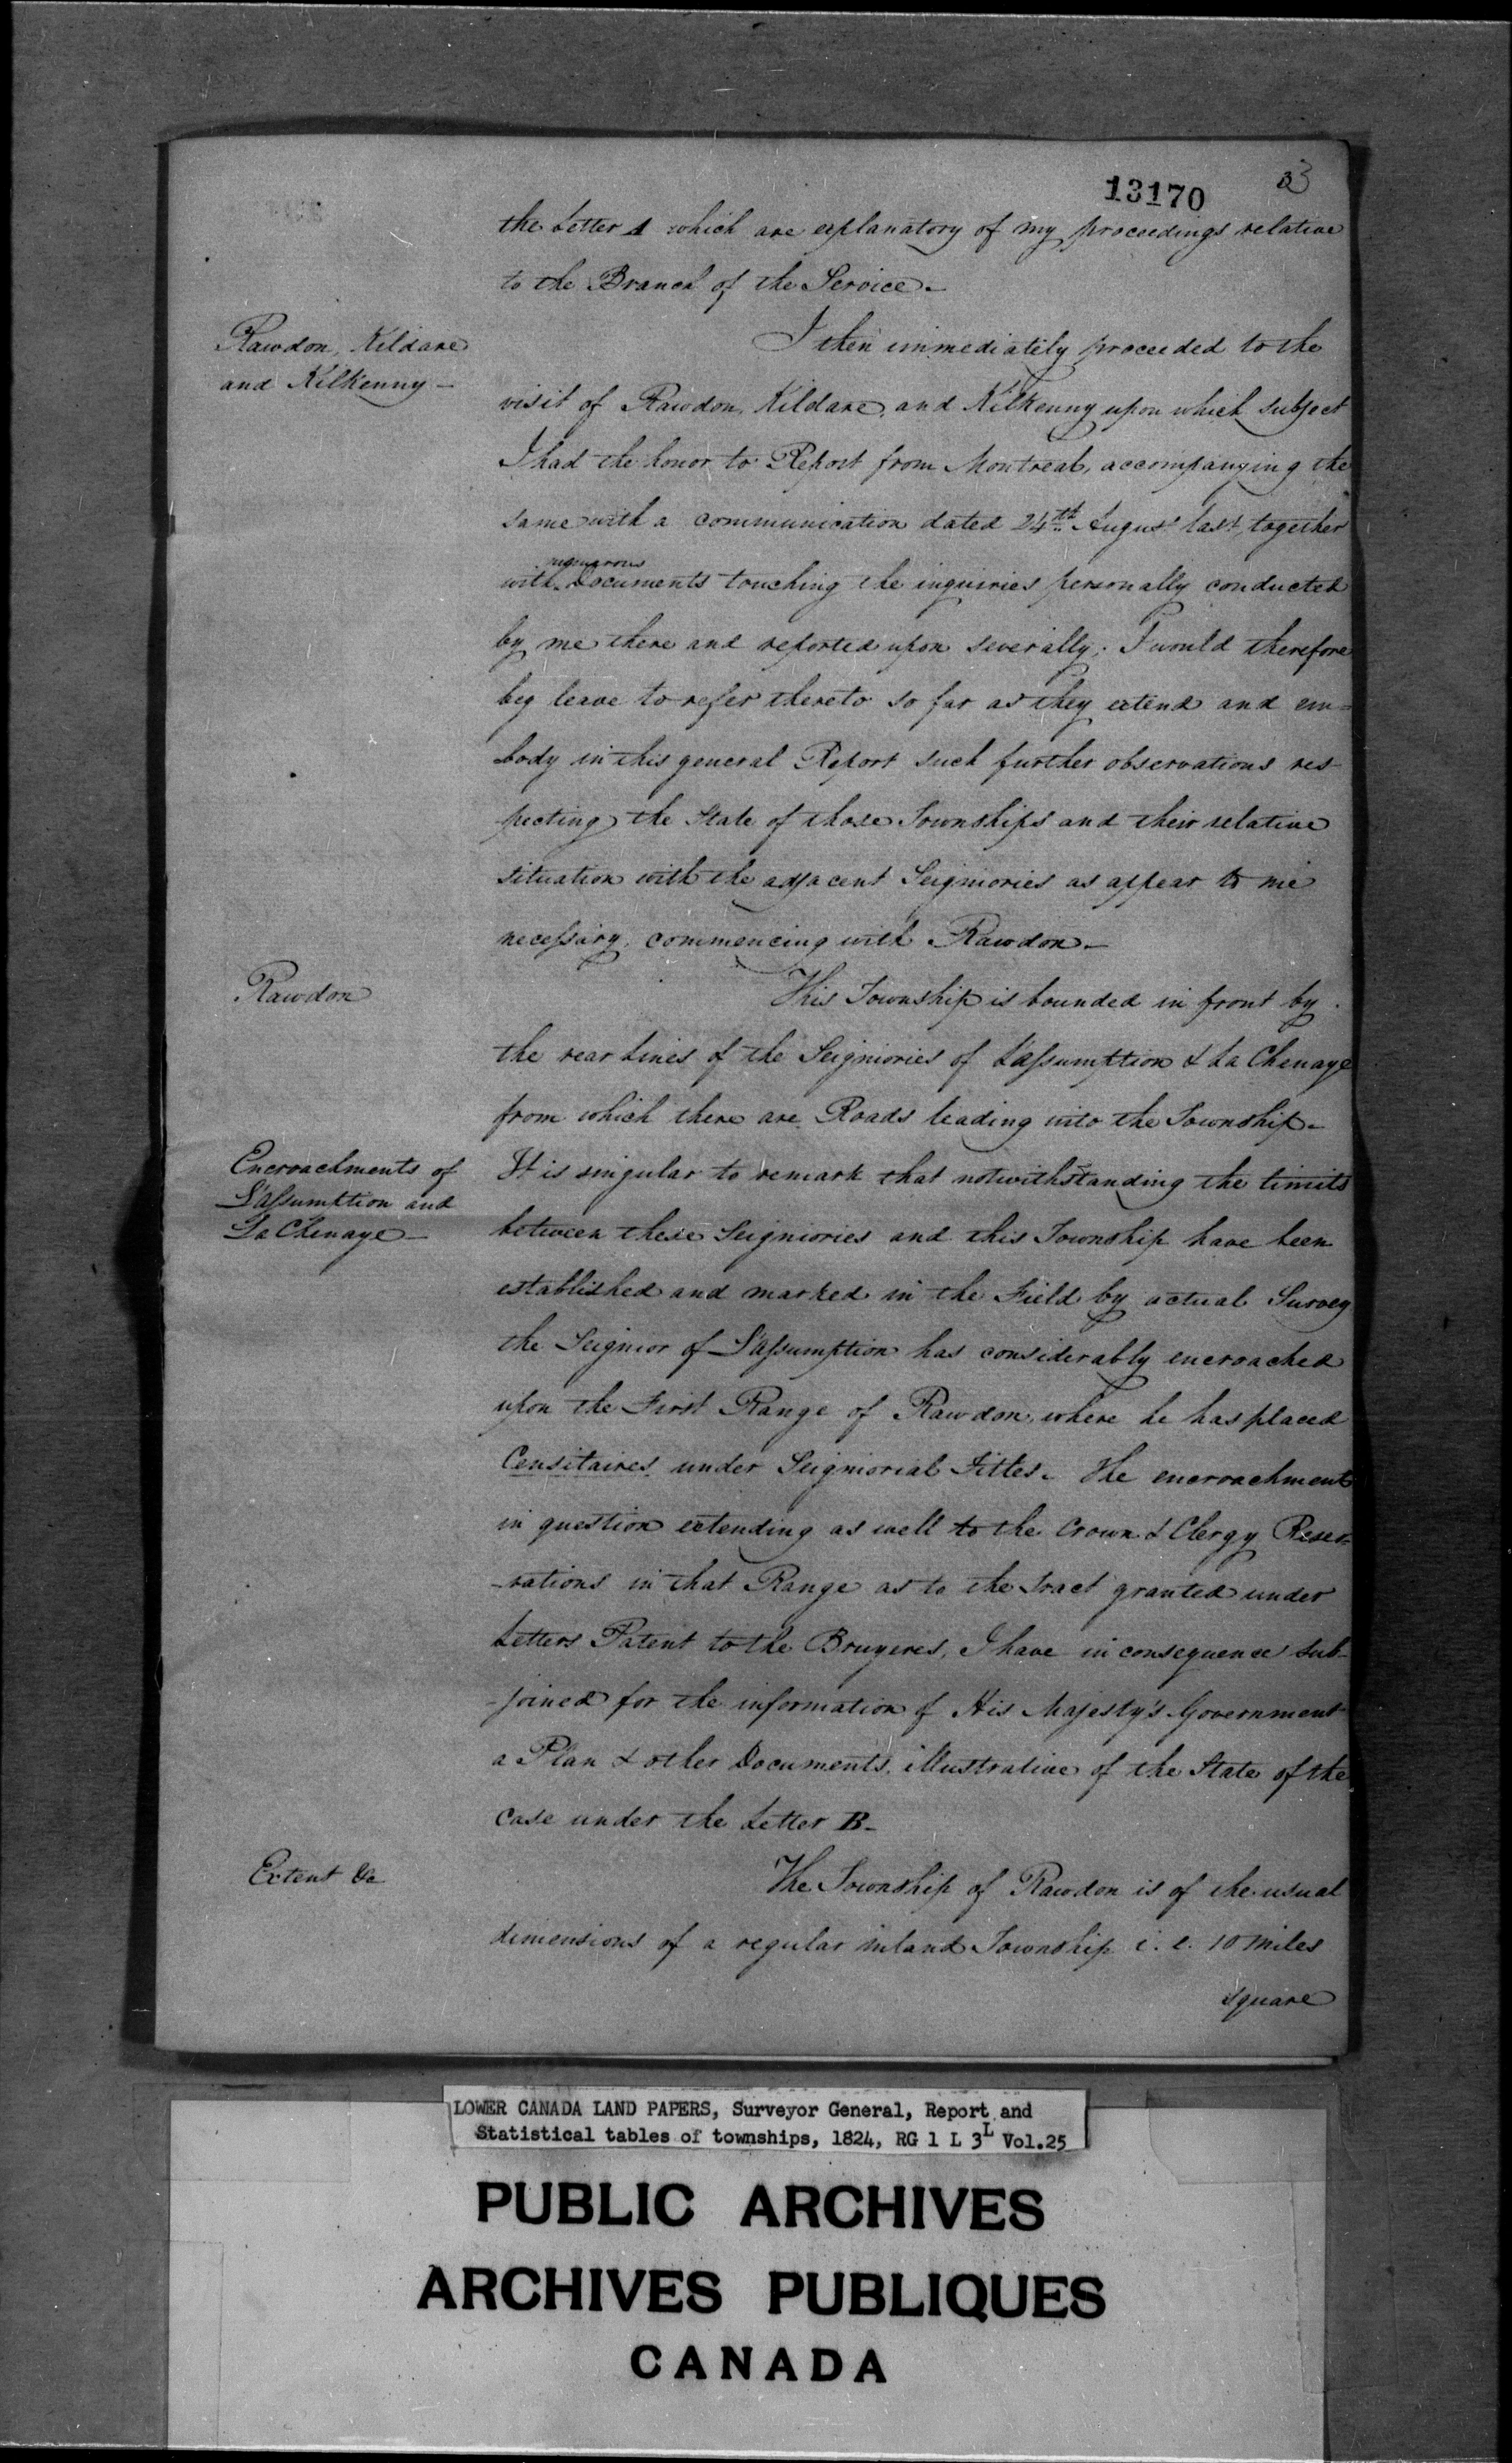 13170
3
the Letter A which are explanatory of my proceedings relative
to the Branch of the Service.
Rawdon, Kildare
and Kilkenny –
I then immediately proceeded to the
visit of Rawdon, Kildare, and Kilkenny upon which subject
I had the honor to Report from Montreal, accompanying the
same with a communication dated 24th August last, together
numerous
with Documents touching the inquiries personally conducted
by me there and reported upon severally; I would therefore
beg leave to refer thereto so far as they extend and em=
body in this general Report such further observations res-
pecting the State of those Townships and their relative
situation with the adjacent Seigniories as appear to me
necessary, commencing with Rawdon –
Rawdon
This Township is bounded in front by
the rear Lines of the Seigniories of L'assumption & La Chenaye
from which there are Roads leading into the Township –
Encroachments of
L'assumption and
La Chenaye –
It is singular to remark that notwithstanding the limits
between these Seigniories and this Township have been
established and marked in the Field by actual Survey
the Seignior of L'assumption has considerably encroached
upon the First Range of Rawdon, where he has placed
Censitaires under Seigniorial Titles. The encroachment
in question extending as well to the Crown & Clergy Reser-
-vations in that Range as to the tract granted under
Letters Patent to the Bruyeres, I have in consequence sub-
-joined for the information of His Majesty's Government
a Plan & other Documents, illustrative of the State of the
case under the Letter B –
Extent &c
The Township of Rawdon is of the usual
dimensions of a regular inland Township i. e. 10 miles
square
LOWER CANADA LAND PAPERS, Surveyor General, Report and
Statistical tables of townships, 1824, RG 1 L 3L Vol.25
PUBLIC ARCHIVES
ARCHIVES PUBLIQUES
CANADA